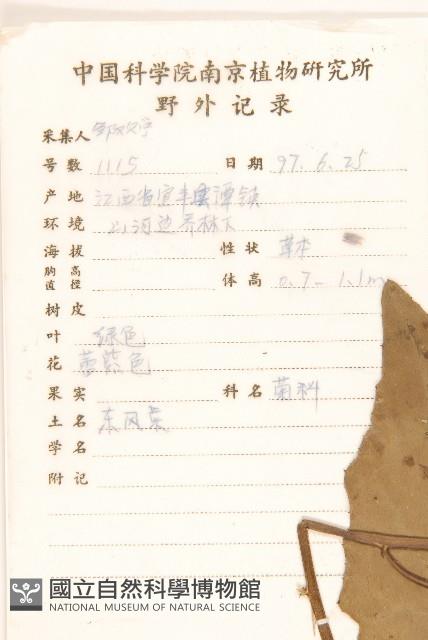 中国科学院南京植物研究所
野外记录
采集人
号数 1115 日期 97.6.25
产地 江西省宜丰县潭镇
环境 山河边乔林下
海拔 性状 草本
胸高直径 体高 0.7-1.1m
树皮
叶 绿色
花 紫色
果实 科名 菊科
土名 东风菜
学名
附记
國立自然科學博物館
NATIONAL MUSEUM OF NATURAL SCIENCE